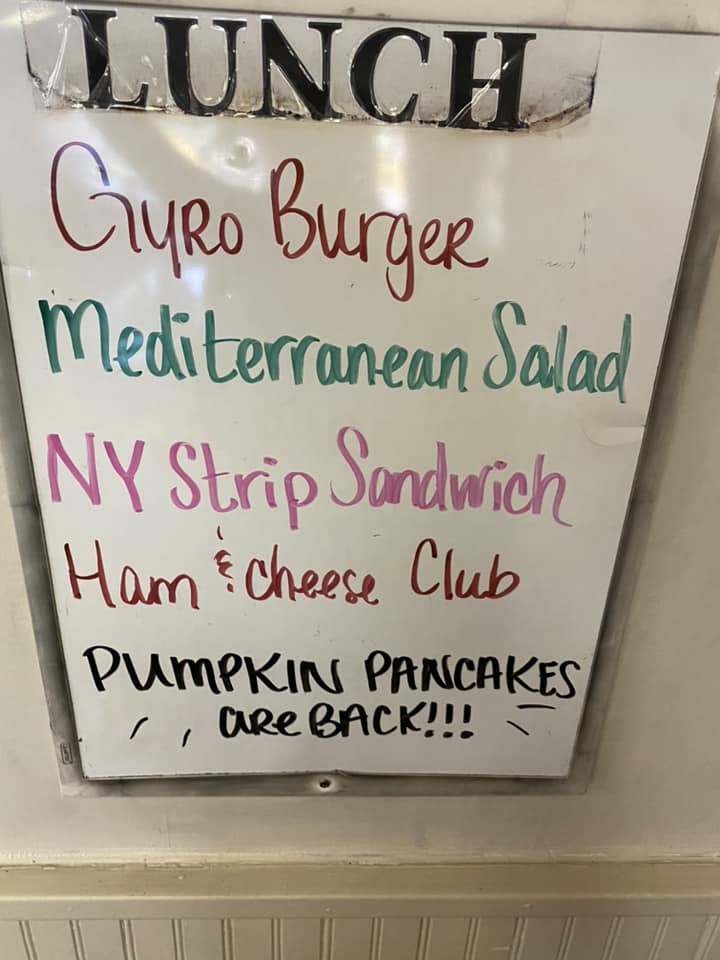 LUNCH
GYRO BurgeR
Mediterranean Salad
NY Strip Sandwich
Ham & cheese Club
PUMPKIN PANCAKES
are BACK!!!